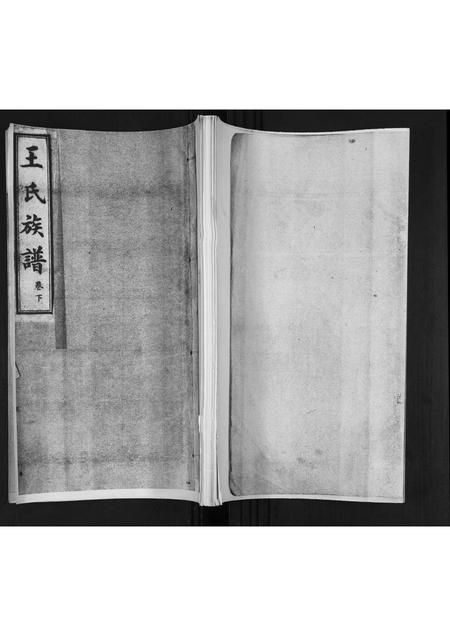 王氏族譜 卷下